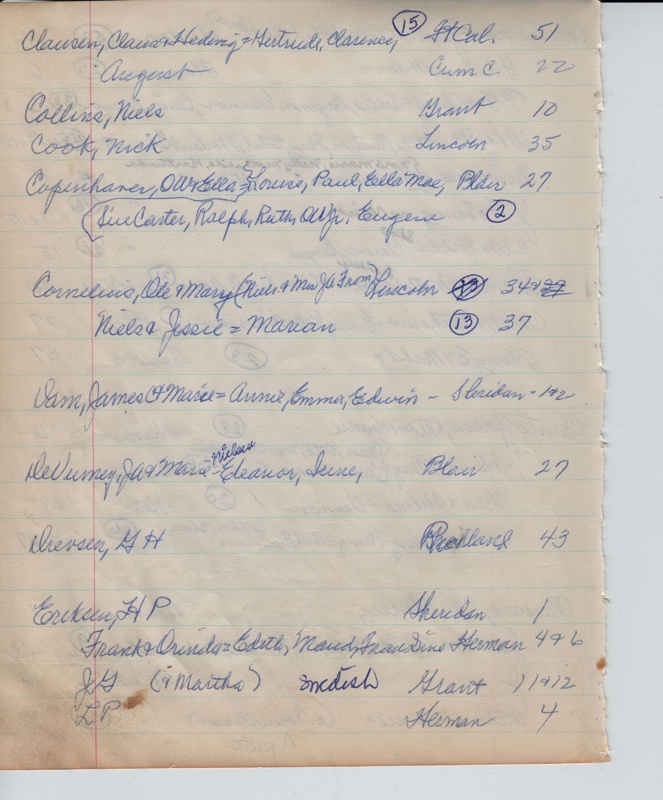 Clausen, Claus & Hedwig = Gertrude, Clarence, (15) Ft Cal. 51
August Cum C 22
Collins, Niels Grant 10
Cook, Nick Lincoln 35
Copenhaver, OW & Ella = Louise, Paul, Ella Mae, Blair 27
Sue Carter, Ralph, Ruth, OW Jr. Eugene (2)
Cornelius, Ole & Mary (Niels & Mrs JA From) Lincoln 34 &
Niels & Jessie = Marian (13) 37
Dam, James C & Marie = Annie, Emma, Edwin - Sheridan - 1 & 2
Nielsen
DeVurney, JA & Marie - Eleanor, Irene, Blair 27
Drevsen, G H Richland 43
Eriksen, H P Sheridan 1
Frank & Orinda = Edith, Maud, Herman 4 & 6
J G (& Martha) Swedish Grant 11 & 12
L P Herman 4